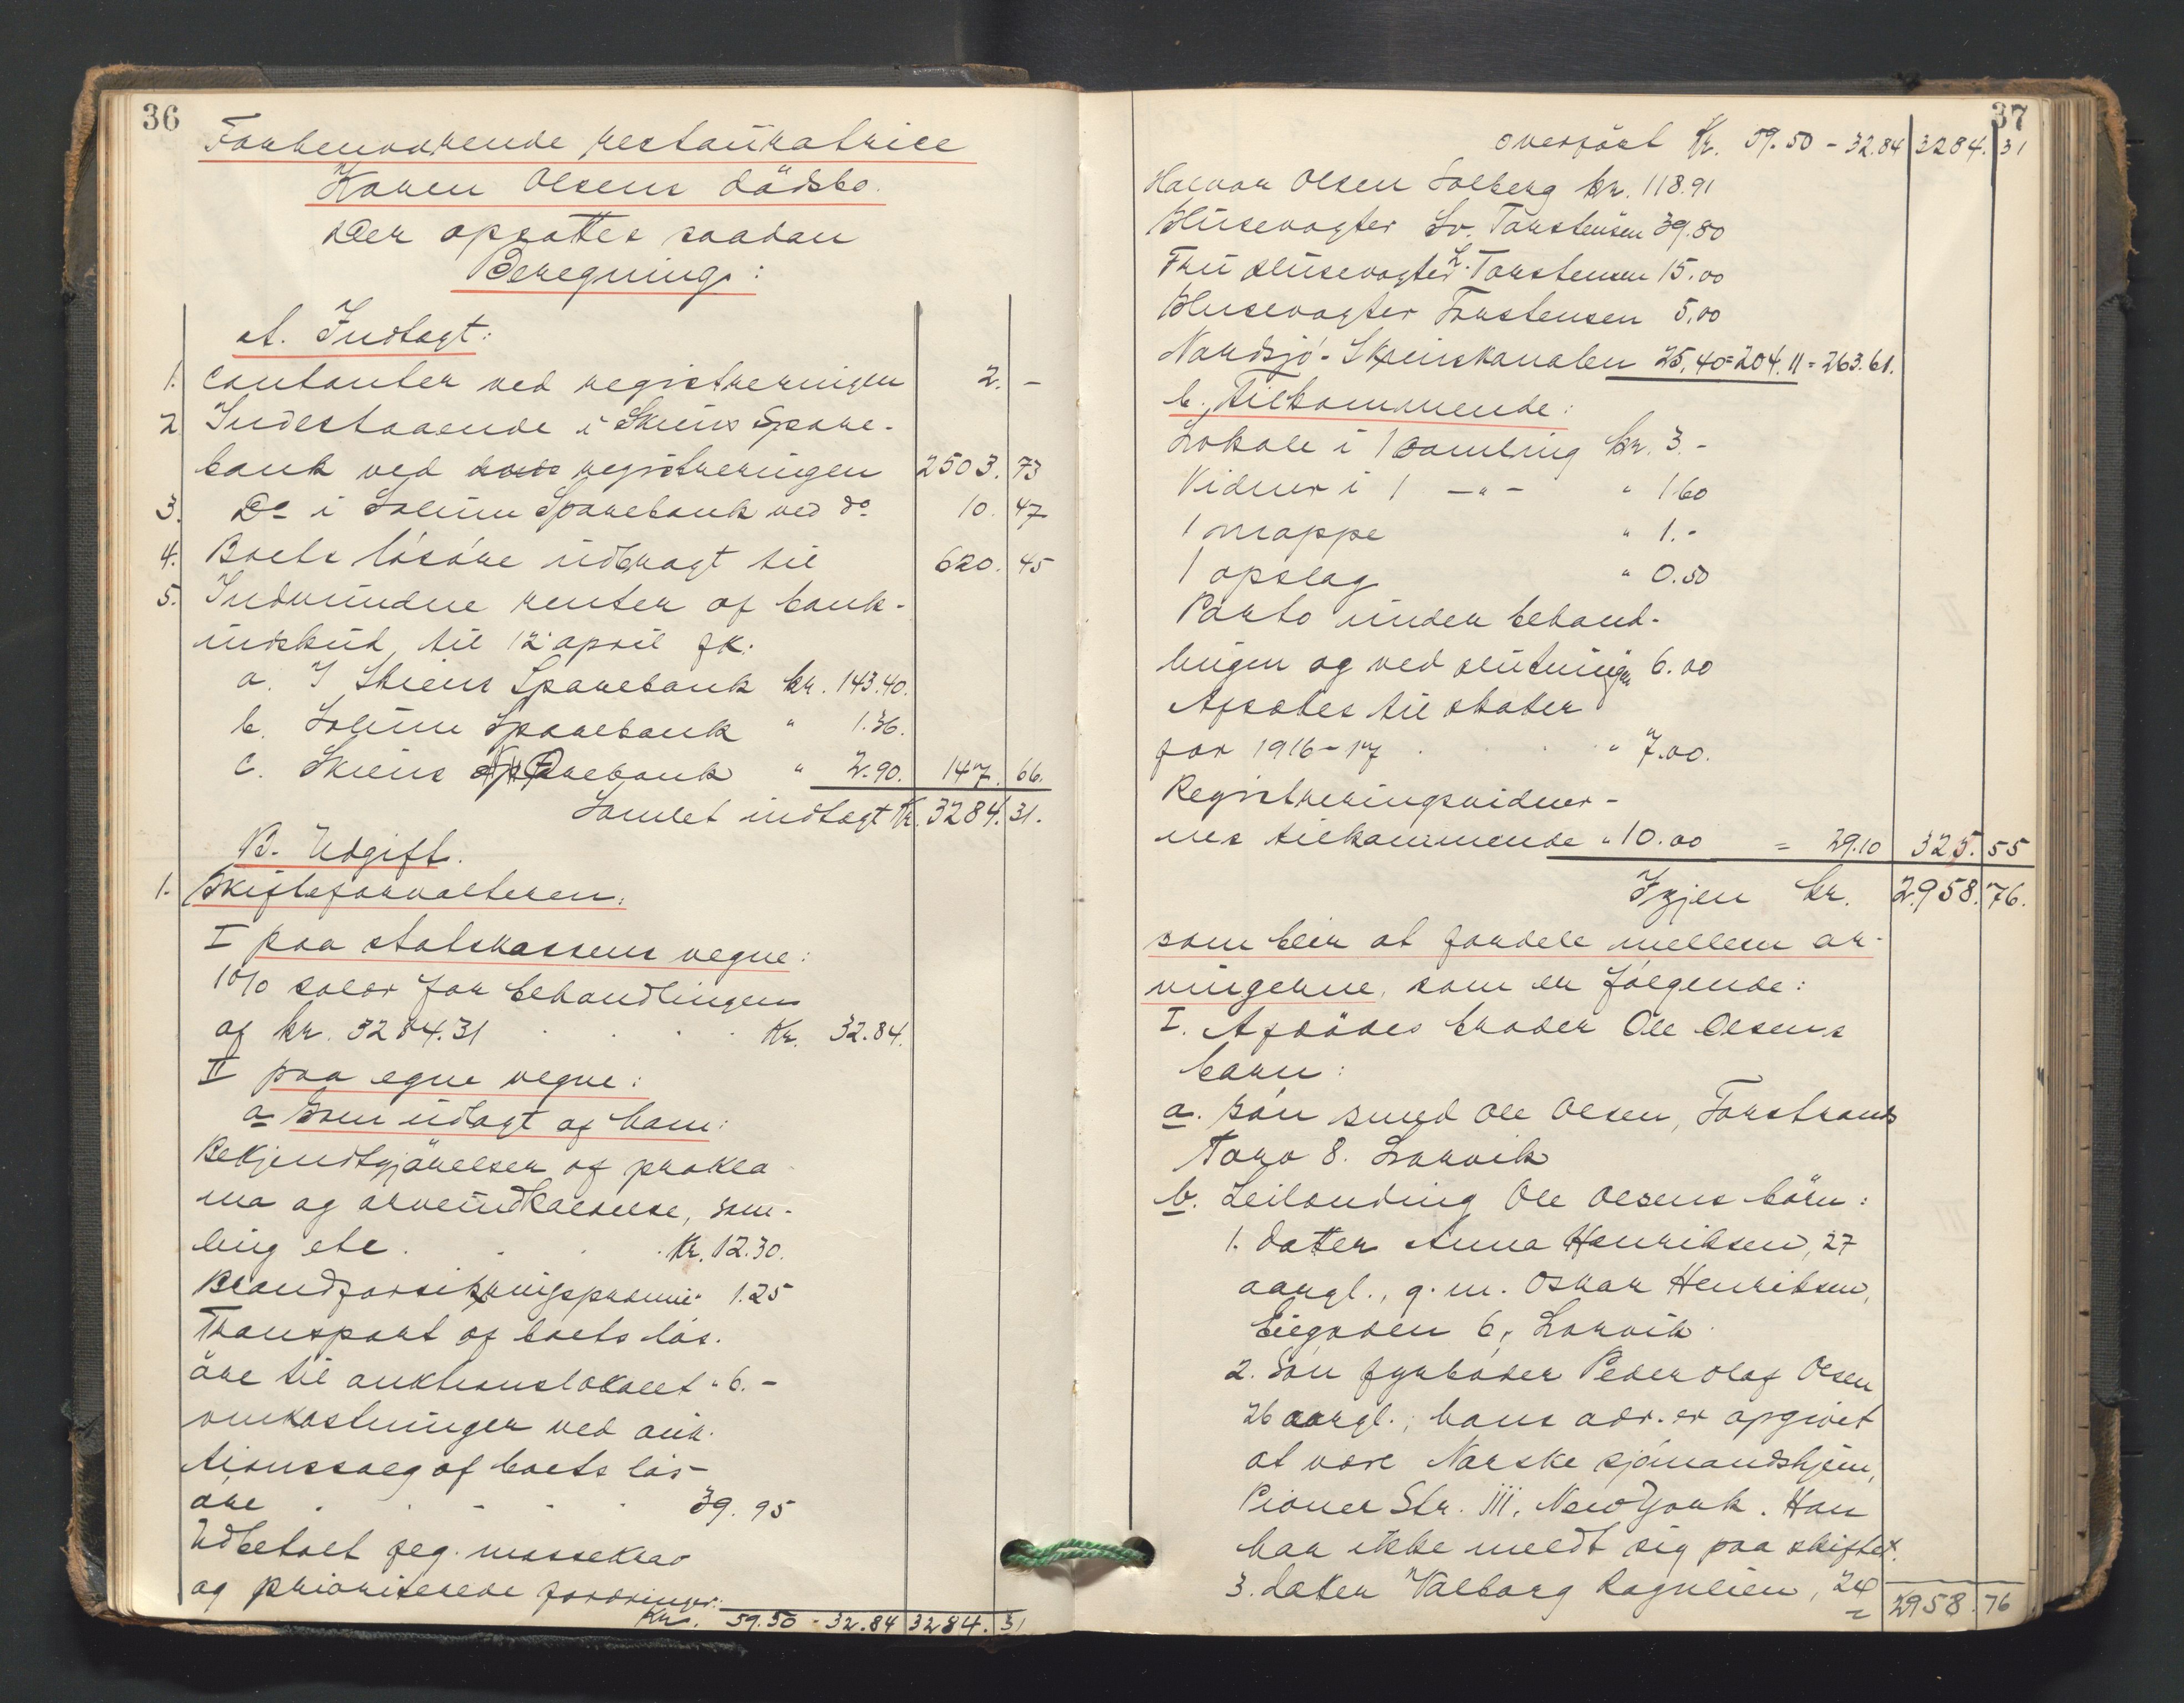 36
Forhenværende restauratrice
Karen Olsens dödsbo.
Der opsattes saadan
Beregning:
A. Indtægt:
1. Contanter ved registreringen 2. -
2 Indestaaende i Skiens Spare-
bank ved registreringen 2503. 73
3. Do i Solum Sparebank ved do 10. 47
4. Boets lösöre udbragt til 620. 45
5. Indvundne renter af bank-
indskud til 12 april fk.
a. I Skiens Sparebank kr. 143.40.
b. Solum Sparebank " 1.36.
c. Skiens Sparebank " 2.90. 147. 66.
Samlet indtægt Kr. 3284. 31.
B. Udgift.
1. Skifteforvalteren.
I paa statskassens vegne:
1% salær for behandlingen
af kr. 3284.31 . . . . Kr. 32.84.
II paa egne vegne:
a Som udlagt af ham:
Bekjendtgjörelsen af prokla
ma og arveindkaldelse, sam-
ling etc. . . . Kr. 12.30.
Brandforsikringspræmie 1.25
Transport af boets lös.
öre til auktionslokalet " 6. -
omkostninger ved auk-
tionssalg af boets lös-
öre . . - - . 39. 95
Udbetalt flg. massekrav
og prioriterede fordringer:
Kr. 59.50 - 32.84 3284. 31
37
overfört Kr. 59.50 - 32.84 3284. 31
Halvor Olsen Solberg kr. 118.91
Slusevogter Lv. Torstensen 39.80
Fru slusevogter L. Torstensen 15.00
Slusevogter Torstensen 5.00
Nordsjö-Skienskanalen 25.40 = 204.11 = 263.61.
b. Tilkommende:
Lokale i 1 samling kr. 3. -
Vidner i 1 - " - " 1.60
1 mappe " 1. -
1 opslag " 0.50
Porto under behand-
lingen og ved slutningen 6.00
Afsættes til skatter
for 1916-17 . . . " 7.00.
Registreringsvidner-
nes tilkommende " 10.00 = 29.10 325. 55
Igjen kr. 2958. 76.
som blir at fordele mellem ar-
vingerne, som er fölgende:
I. Afdödes broder Ole Olsens
barn:
a. Sön smed Ole Olsen, Torstrands
Torv 8. Larvik
b. Leilænding Ole Olsens börn:
1. datter Anna Henriksen, 27
aargl., g. m. Oskar Henriksen,
Eiegoden 6, Larvik.
2. Sön fyrböder Peder Olaf Olsen
26 aargl.; hans adr. er opgivet
at være Norske sjömandshjem,
Pioner Str. 111, New York. Han
har ikke meldt sig paa skiftet.
3. datter Valborg Ragnlien, 24
= 2958. 76